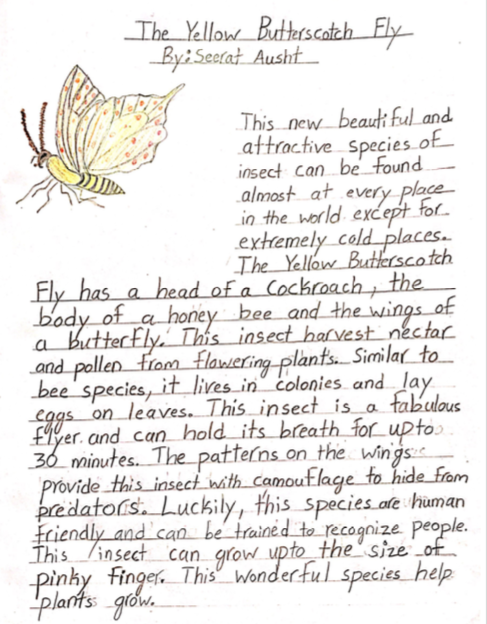 The Yellow Butterscotch Fly
By: Seerat Ausht
This new beautiful and
attractive species of
insect can be found
almost at every place
in the world except for
extremely cold places.
The Yellow Butterscotch
Fly has a head of a Cockroach, the
body of a honey bee and the wings of
a butterfly. This insect harvest nectar
and pollen from flowering plants. Similar to
bee species, it lives in colonies and lay
eggs on leaves. This insect is a fabulous
flyer and can hold its breath for upto
30 minutes. The patterns on the wings
provide this insect with camouflage to hide from
predators. Luckily, this species are human
friendly and can be trained to recognize people.
This insect can grow upto the size of
pinky finger. This wonderful species help
plants grow.